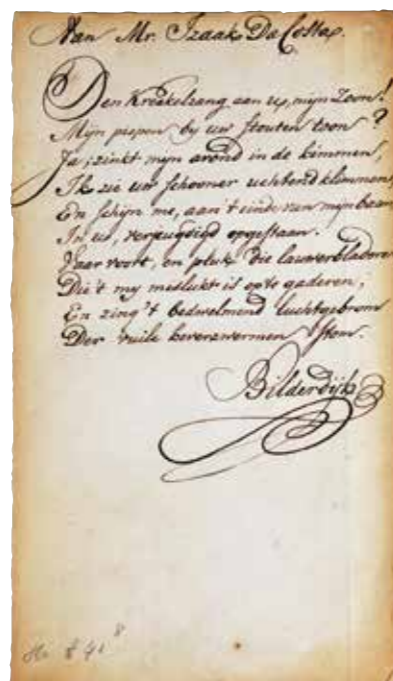 Aan Mr. Izaak Da Costa.
Den Krekelzang aan u, mijn Zoon!
Mijn piepen by uw stouten toon?
Ja; zinkt mijn avond in de kimmen,
Ik zie uw schooner uchtend klimmen,
En schijn me, aan 't eind van mijn baan
In uw, verjeugdigd opgestaan.
Vaar voort, en pluk die lauwerbladeren
Die 't my mislukt is op te gaderen,
En zing 't bedwelmend luchtgebrom
Der vuile keverzwermen stom.
Bilderdijk